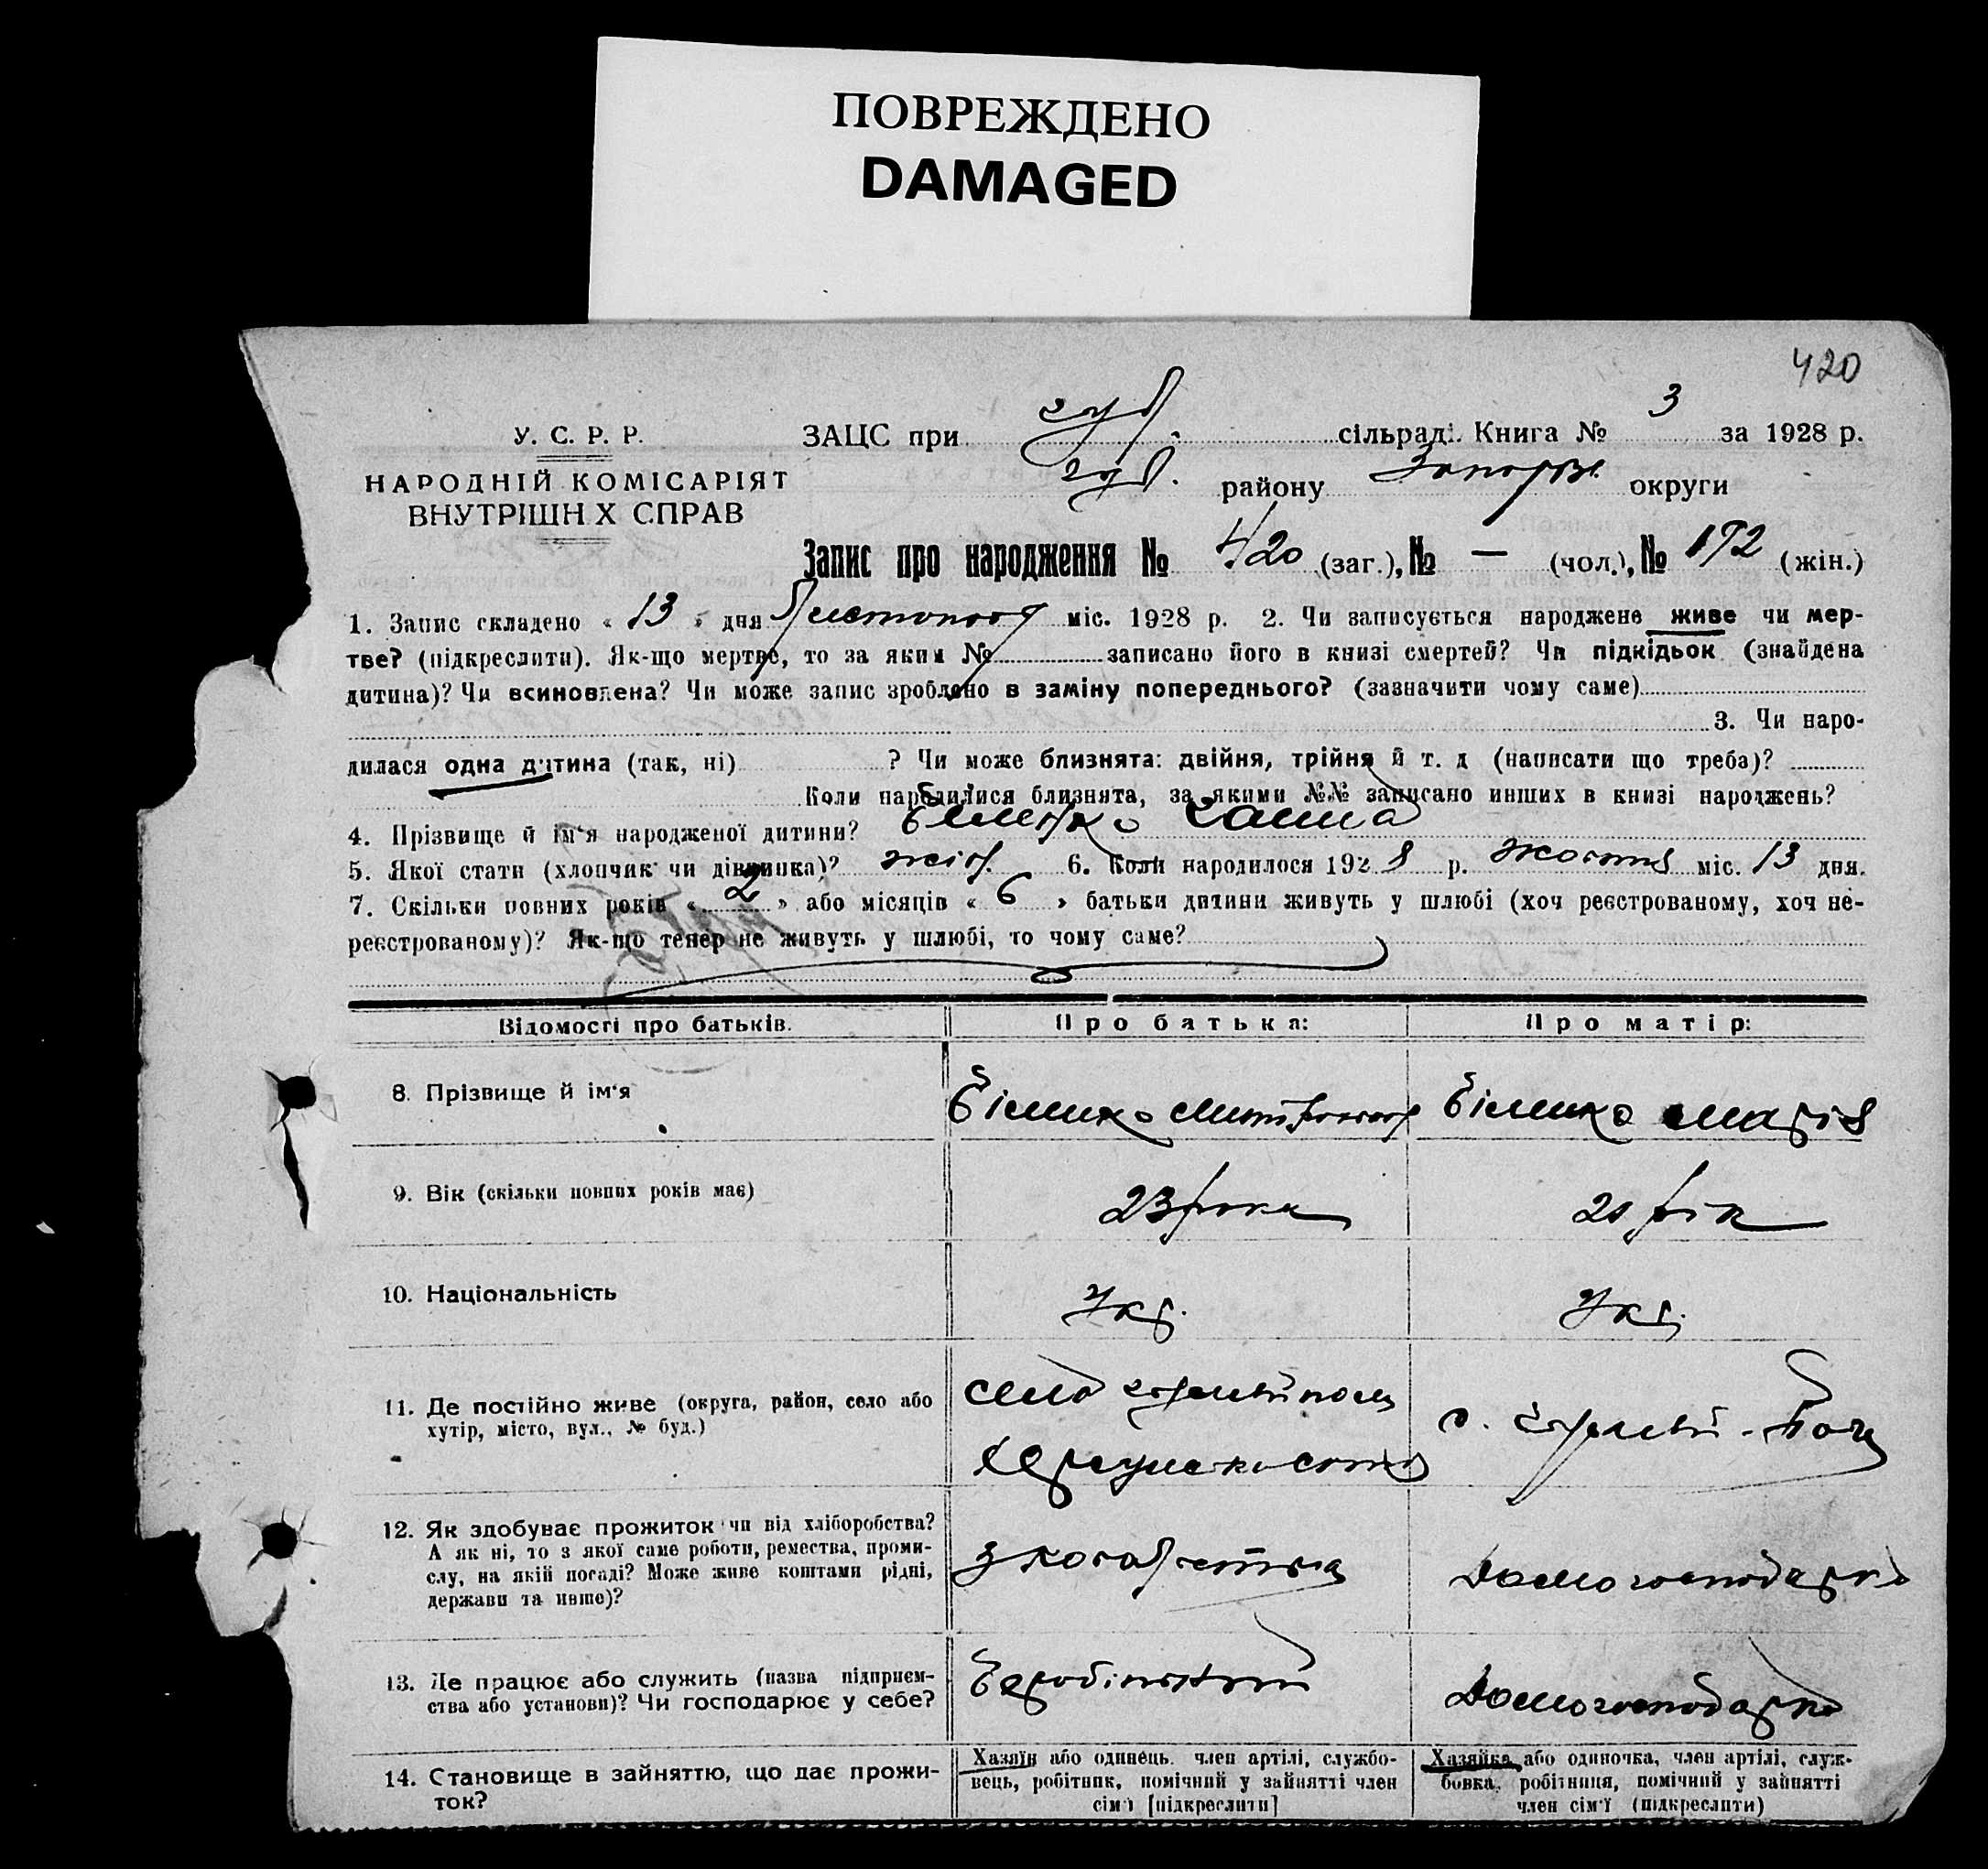 ПОВРЕЖДЕНО
DAMAGED
420
У. С. Р. Р.
НАРОДНІЙ КОМІСАРІЯТ
ВНУТРІШН Х СПРАВ
ЗАЦС при сільраді. Книга № 3 за 1928 р.
району округи
Запис про народження № 420 (заг.), № — (чол.), № 192 (жін.)
1. Запис складено « 13 » дня Листопад міс. 1928 р. 2. Чи записується народжене живе чи мер-
тве? (підкреслити). Як-що мертве, то за яким № записано його в книзі смертей? Чи підкідьок (знайдена
дитина)? Чи всиновлена? Чи може запис зроблено в заміну попереднього? (зазначити чому саме)
3. Чи наро-
дилася одна дитина (так, ні) ? Чи може близнята: двійня, трійня й т. д (написати що треба)?
Коли народилися близнята, за якими №№ записано инших в книзі народжень?
4. Прізвище й ім‘я народженої дитини?
5. Якої стати (хлопчик чи дівчинка)? жін. 6. Коли народилося 1928 р. жовтня міс. 13 дня.
7. Скільки повних років « 2 » або місяців « 6 » батьки дитини живуть у шлюбі (хоч реєстрованому, хоч не-
реєстрованому)? Як-що тепер не живуть у шлюбі, то чому саме?
Відомості про батьків. Про батька: Про матір:
8. Прізвище й ім‘я
Марія
9. Вік (скільки повних років має) 23 роки 21 рік
10. Національність Укр. Укр.
11. Де постійно живе (округа, район, село або
хутір, місто, вул., № буд.)
село
с.
12. Як здобуває прожиток чи від хліборобства?
А як ні, то з якої саме роботи, ремества, проми-
слу, на якій посаді? Може живе коштами рідні,
держави та инше)?
Домогосподарка
13. Де працює або служить (назва підприєм-
ства або установи)? Чи господарює у себе?
Безробітний Домогосподарка
14. Становище в зайняттю, що дає прожи-
ток?
Хазяїн або одинець, член артілі, службо-
вець, робітник, помічний у зайнятті член
сім‘ї [підкреслити]
Хазяйка або одиночка, член артілі, служ-
бовка, робітниця, помічний у зайнятті
член сім‘ї (підкреслити)